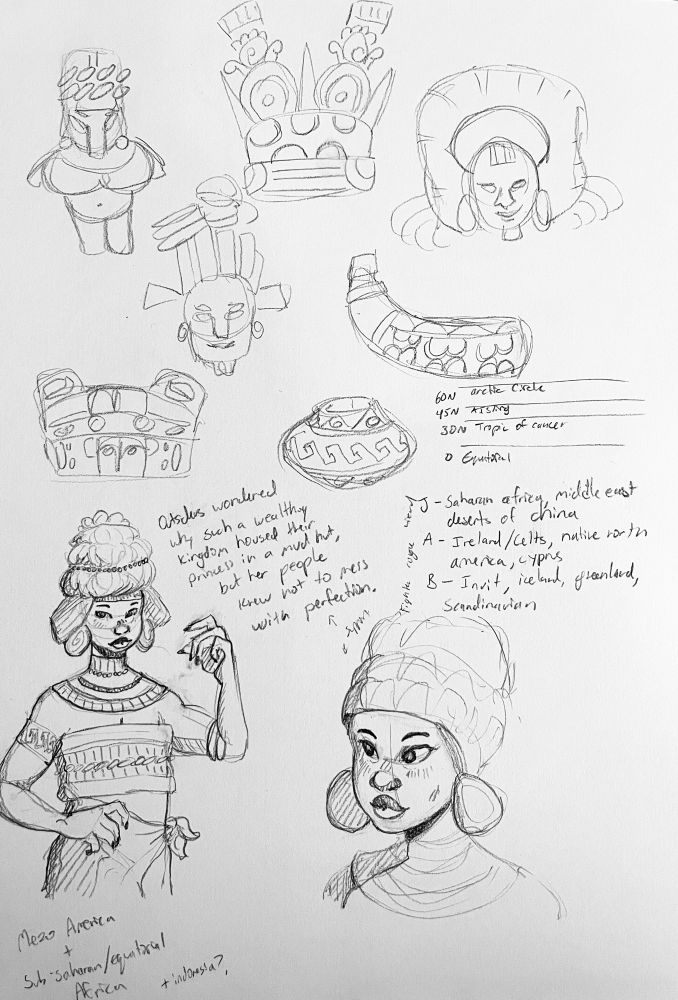 60N arctic Circle
45N Aisling
30N Tropic of cancer
0 Equitorial
Outsiders wondered
why such a wealthy
kingdom housed their
princess in a mud hut,
but her people
knew not to mess
with perfection.
J - Saharan africa, middle east
deserts of china
A - Ireland/Celts, native north
america, cyprus
B - Inuit, iceland, greenland,
Scandinavian
Mezo America
+
Sub-saharan/equitorial
Africa
+ indonesia?